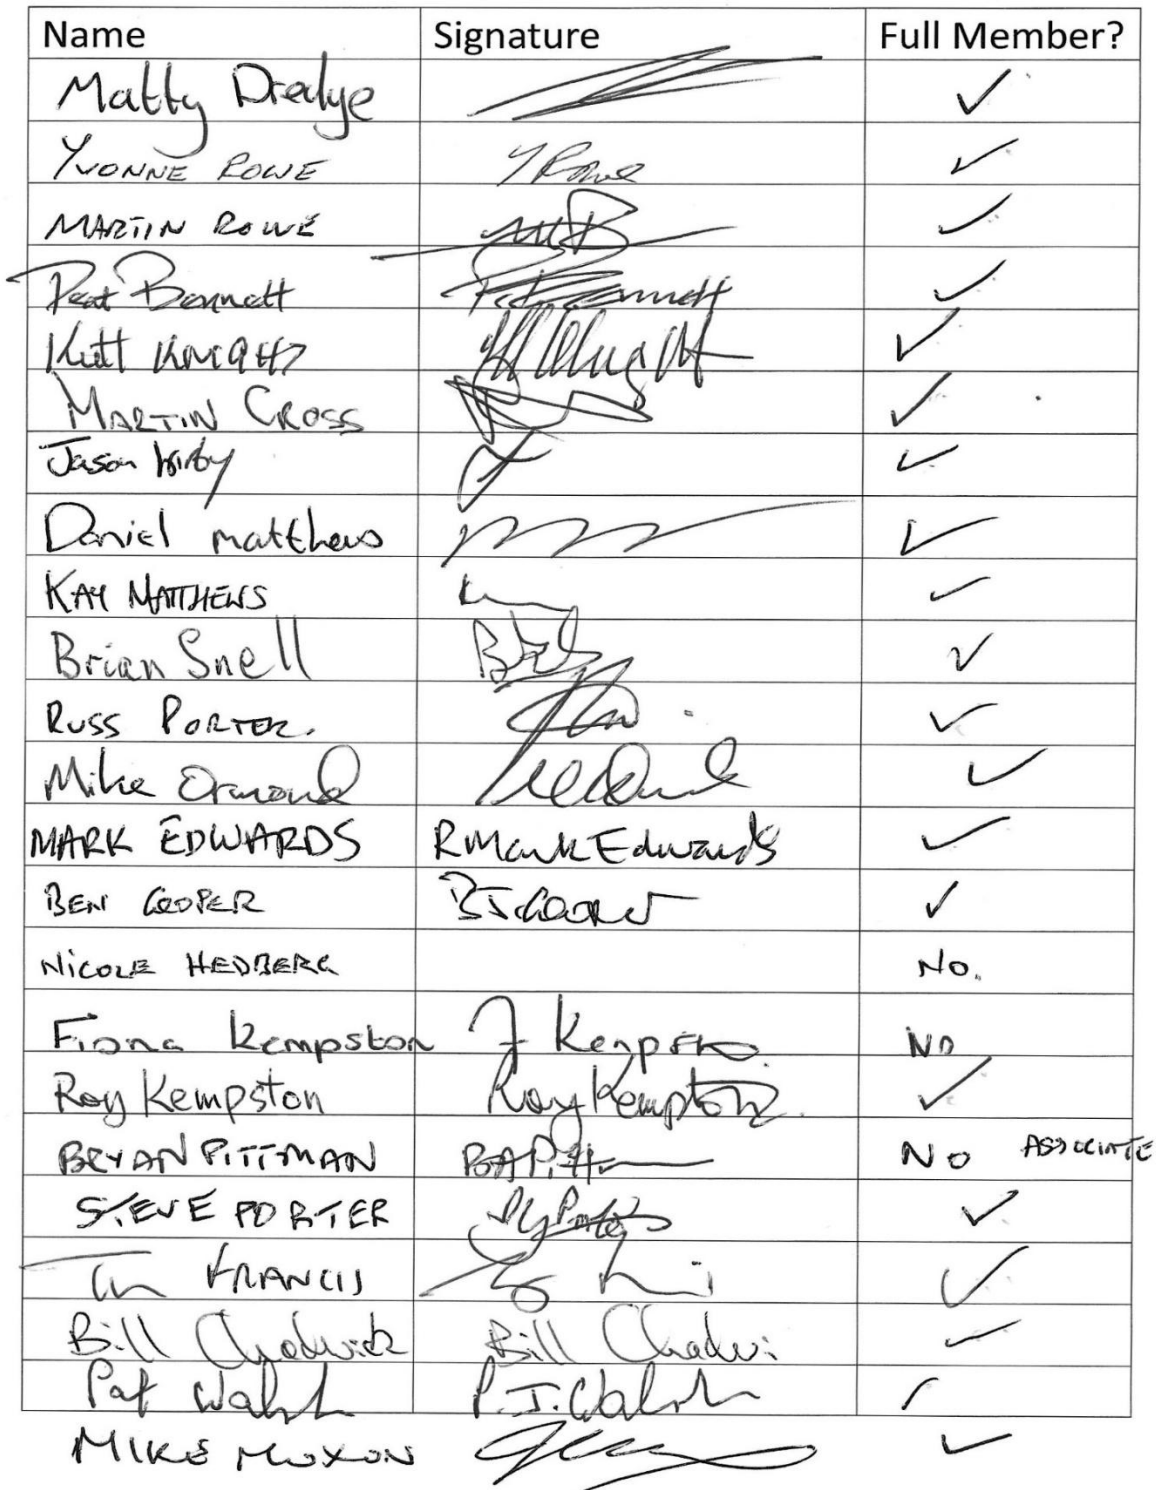 Name Signature Full Member?
Matty Dredge ✓
YVONNE ROWE Y Rowe ✓
MARTIN ROWE ✓
Pat Bennett P Bennett ✓
KNIGHT ✓
MARTIN CROSS ✓
Jason Kirby ✓
Daniel matthews ✓
KAY MATTHEWS ✓
Brian Snell ✓
RUSS PORTER. ✓
Mike Ormond ✓
MARK EDWARDS RMark Edwards ✓
BEN COOPER BJ Cooper ✓
NICOLE HEDBERG No.
Fiona Kempston F Kempston NO
Roy Kempston Roy Kempston ✓
BRYAN PITTMAN BAPitt NO ASSOCIATE
STEVE PORTER ✓
FRANCIS ✓
Bill Chadwick Bill Chadwi ✓
Pat Walsh P.J. Walsh ✓
MIKE MOXON ✓